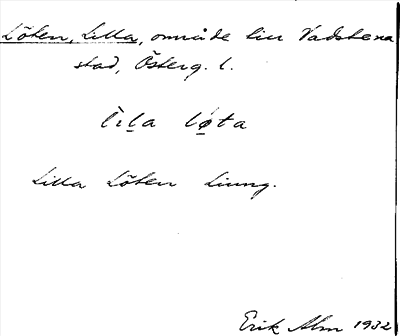 Löten, Lilla, område  Vadstena
stad, Österg. l.
lila løta
Lilla Löten Ljung.
Erik Alm 1932